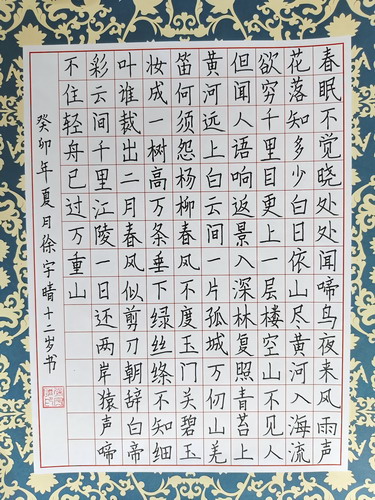 春眠不觉晓处处闻啼鸟夜来风雨声
花落知多少白日依山尽黄河入海流
欲穷千里目更上一层楼空山不见人
但闻人语响返景入深林复照青苔上
黄河远上白云间一片孤城万仞山羌
笛何须怨杨柳春风不度玉门关碧玉
妆成一树高万条垂下绿丝绦不知细
叶谁裁出二月春风似剪刀朝辞白帝
彩云间千里江陵一日还两岸猿声啼
不住轻舟已过万重山
癸卯年夏月徐宇晴十二岁书